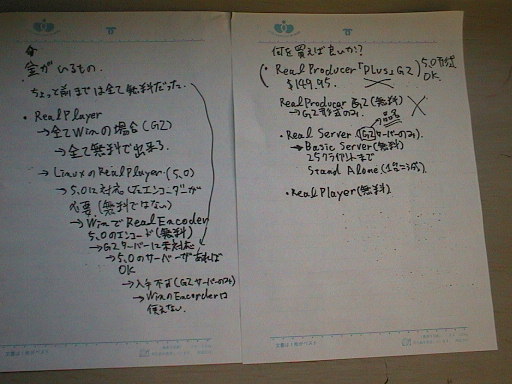 金がいるもの.
ちょっと前までは全て無料だった.
・RealPlayer
→全てWinの場合(G2)
→全て無料で出来る.
→LinuxのRealPlayer(5.0)
→5.0に対応したエンコーダが
必要(無料ではない)
→WinでRealEncoder
5.0のエンコード(無料)
→G2サーバーに未対応
→5.0のサーバーがあれば
OK
→入手不可(G2サーバーのみ)
→WinのEncorderは
使えない.
何を買えば良いか?
・RealProducer「Plus」G2
5.0形式
OK.
$149.95.
RealProducer G2(無料)
→G2形式のみ.
・Real Server(G2サーバーのみ).
→Basic Server(無料)
25クライアントまで
Stand Alone
・RealPlayer(無料).